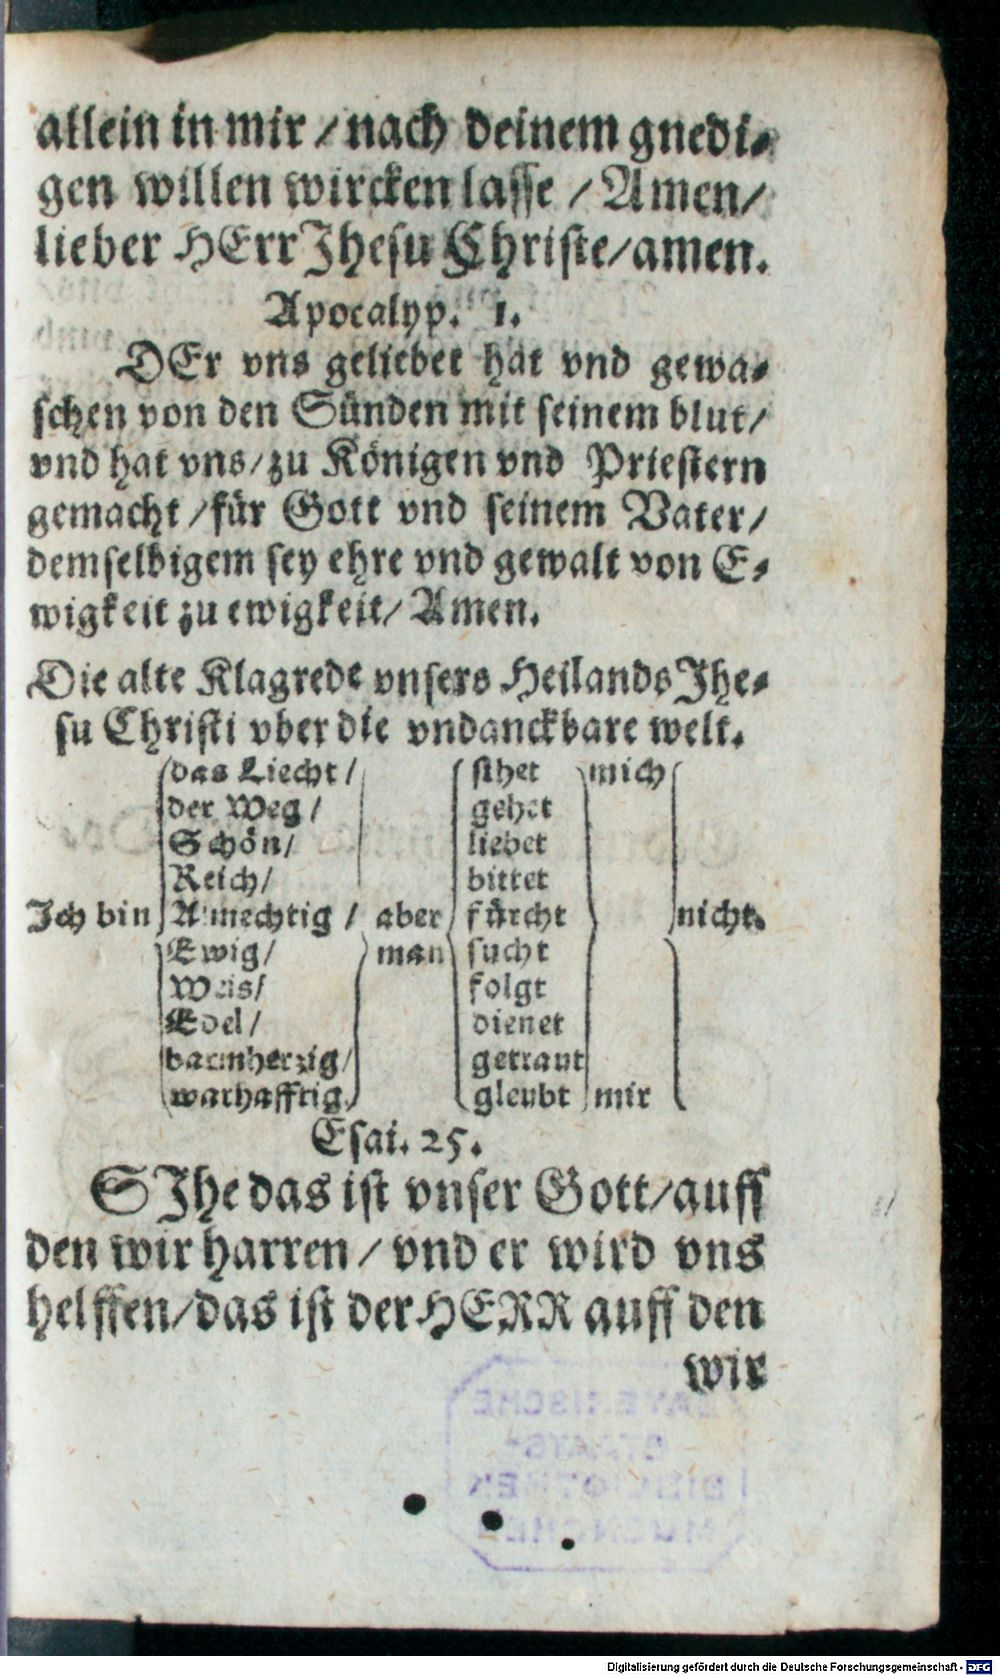 allein in mir / nach deinem gnedi-
gen willen wircken lasse / Amen/
lieber HErr Jhesu Christe/amen.
Apocalyp. 1.
DEr vns geliebet hat vnd gewa-
schen von den Sünden mit seinem blut/
vnd hat vns/zu Königen vnd Priestern
gemacht /für Gott vnd seinem Vater/
demselbigem sey ehre vnd gewalt von E-
wigkeit zu ewigkeit/ Amen.
Die alte Klagrede vnsers Heilands Jhe-
su Christi vber die vndanckbare welt.
das Liecht / sihet mich
der Weg / gehet
Schön/ liebet
Reich/ bittet
Ich bin Almechtig / aber fürcht nicht.
Ewig/ man sucht
Weis/ folgt
Edel/ dienet
barmherzig/ getraut
warhafftig/ gleubt mir
Esai. 25.
SIhe das ist vnser Gott/auff
den wir harren / vnd er wird vns
helffen/das ist der HERR auff den
wir
BAYERISCHE
STAATS-
BIBLIOTHEK
MUENCHEN
Digitalisierung gefördert durch die Deutsche Forschungsgemeinschaft - DFG